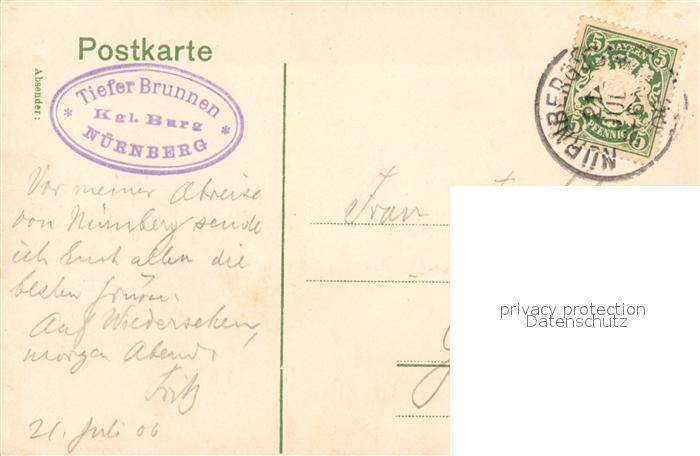 Postkarte
Absender:
* Tiefer Brunnen *
Kgl. Burg
NÜRNBERG
BAYERN
5 5
5 5
PFENNIG
NÜRNBERG
21 JUL
Vor meiner Abreise
von Nürnberg sende
ich Euch allen die
besten Grüße.
Auf Wiedersehen,
morgen Abend.
Fritz
21. Juli 06
Frau
privacy protection
Datenschutz